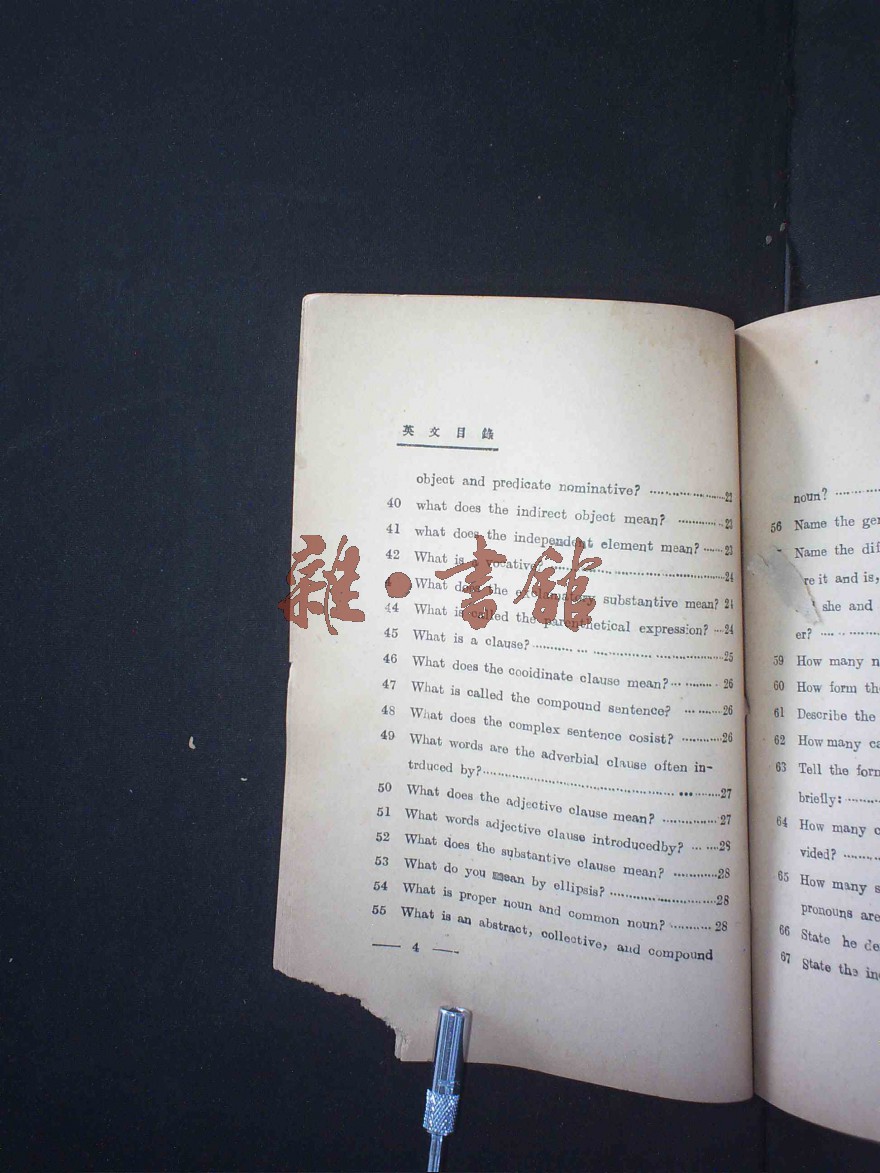 英文目錄
object and predicate nominative? ........................22
40 what does the indirect object mean? ............23
41 what does the independent element mean? ......23
42 What is a vocative? ........................24
What does the exclamatory substantive mean? 24
44 What is called the parenthetical expression? ...24
45 What is a clause?........................25
46 What does the cooidinate clause mean?............26
47 What is called the compound sentence? .........26
48 What does the complex sentence cosist? ............26
49 What words are the adverbial clause often in-
trduced by?........................27
50 What does the adjective clause mean? ...............27
51 What words adjective clause introducedby? ......28
52 What does the substantive clause mean? ............28
53 What do you mean by ellipsis? ........................28
54 What is proper noun and common noun? ..........28
55 What is an abstract, collective, and compound
— 4 —
noun? .........
56 Name the
Name the
it and is,
she and
er? .........
59 How many
60 How form
61 Describe the
62 How many
63 Tell the
briefly: .........
64 How many
vided? .........
65 How many
pronouns are
66 State he
67 State the
雜·書館